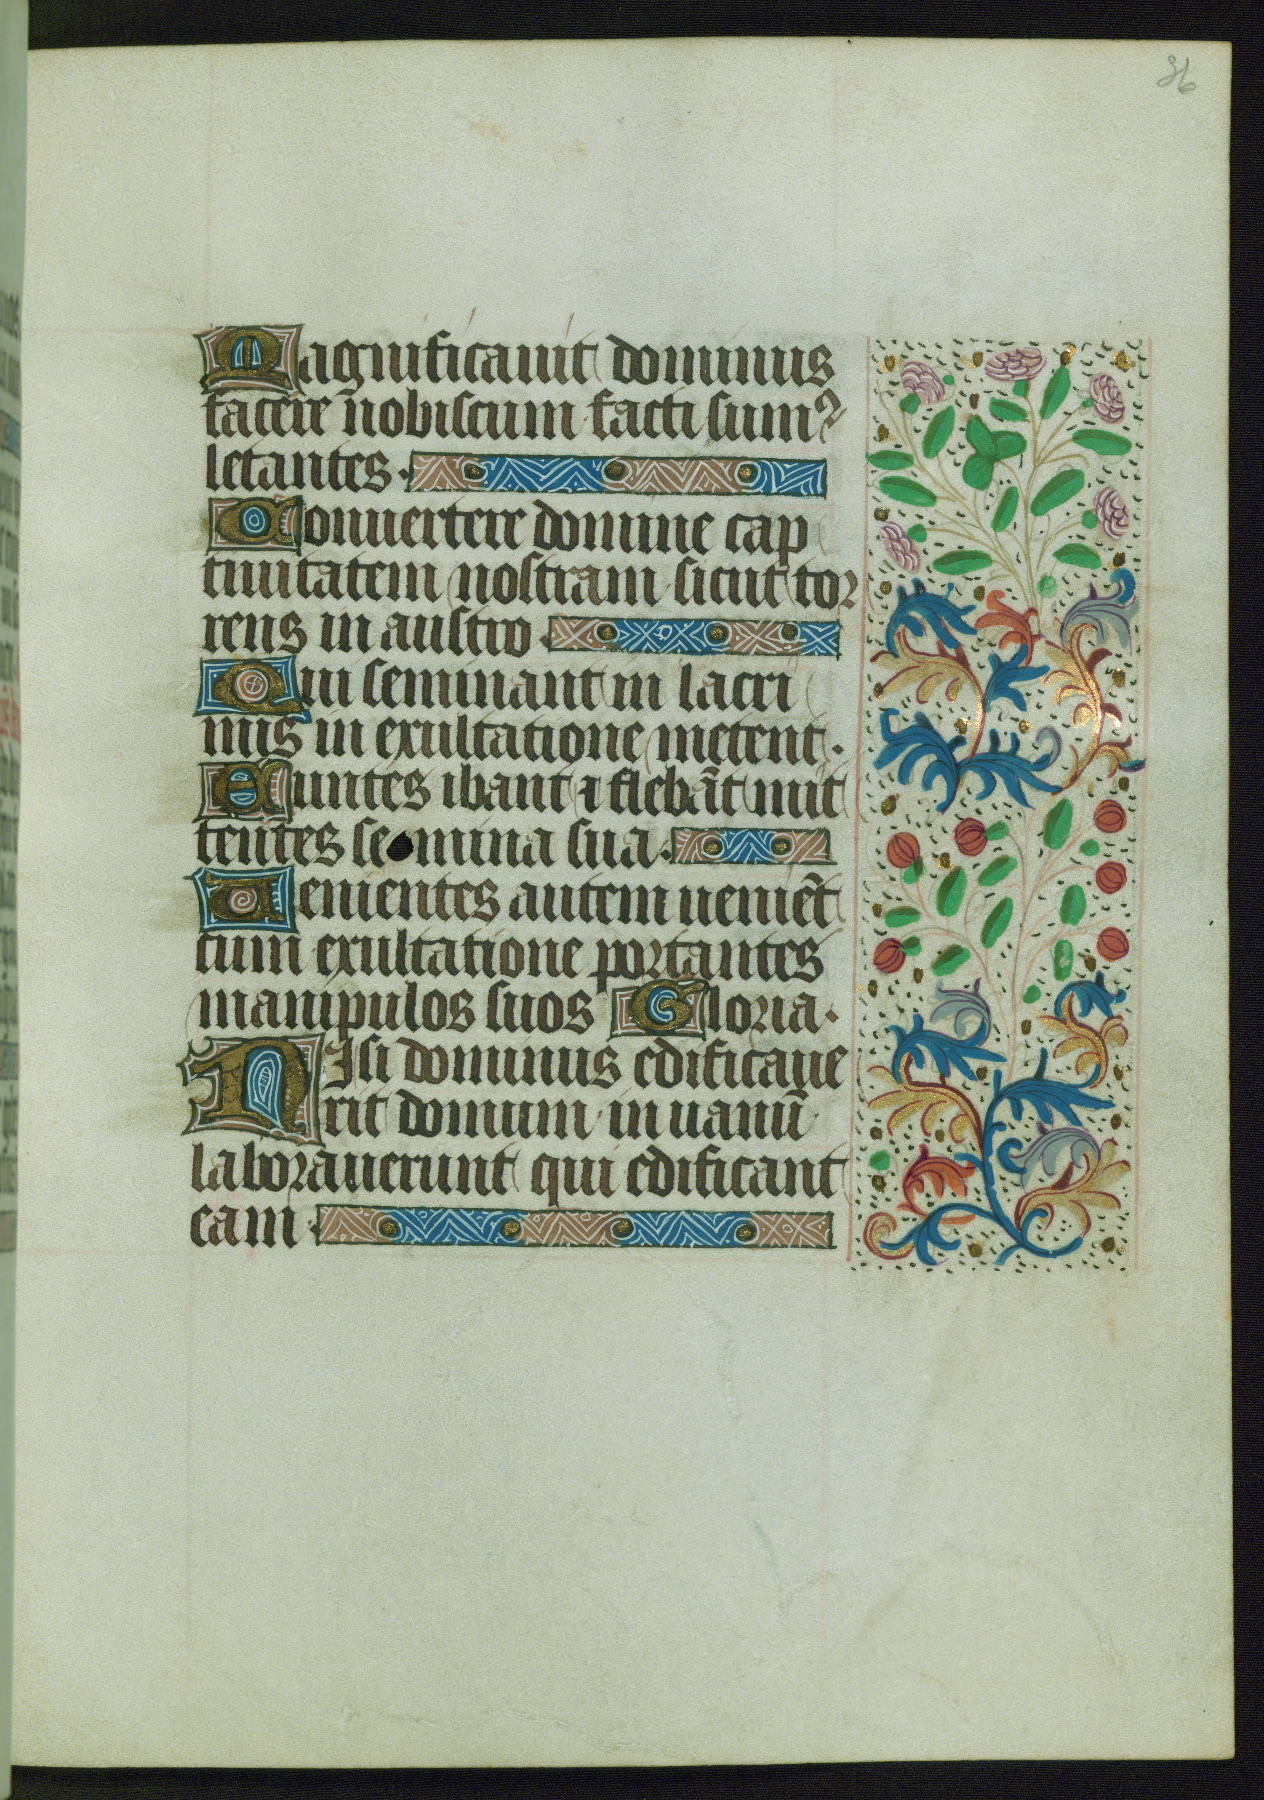 36
Magnificauit dominus
facere nobiscum facti sumꝰ
letantes.
Conuertere domine cap
tiuitatem nostram sicut tor
rens in austro.
Qui seminant in lacri
mis in exultatione metent.
Euntes ibant ⁊ flebāt mit
tentes semina sua.
Uenientes autem ueniēt
cum exultatione portantes
manipulos suos Gloria.
NIsi dominus edificaue
rit domum in uanū
laborauerunt qui edificant
eam.